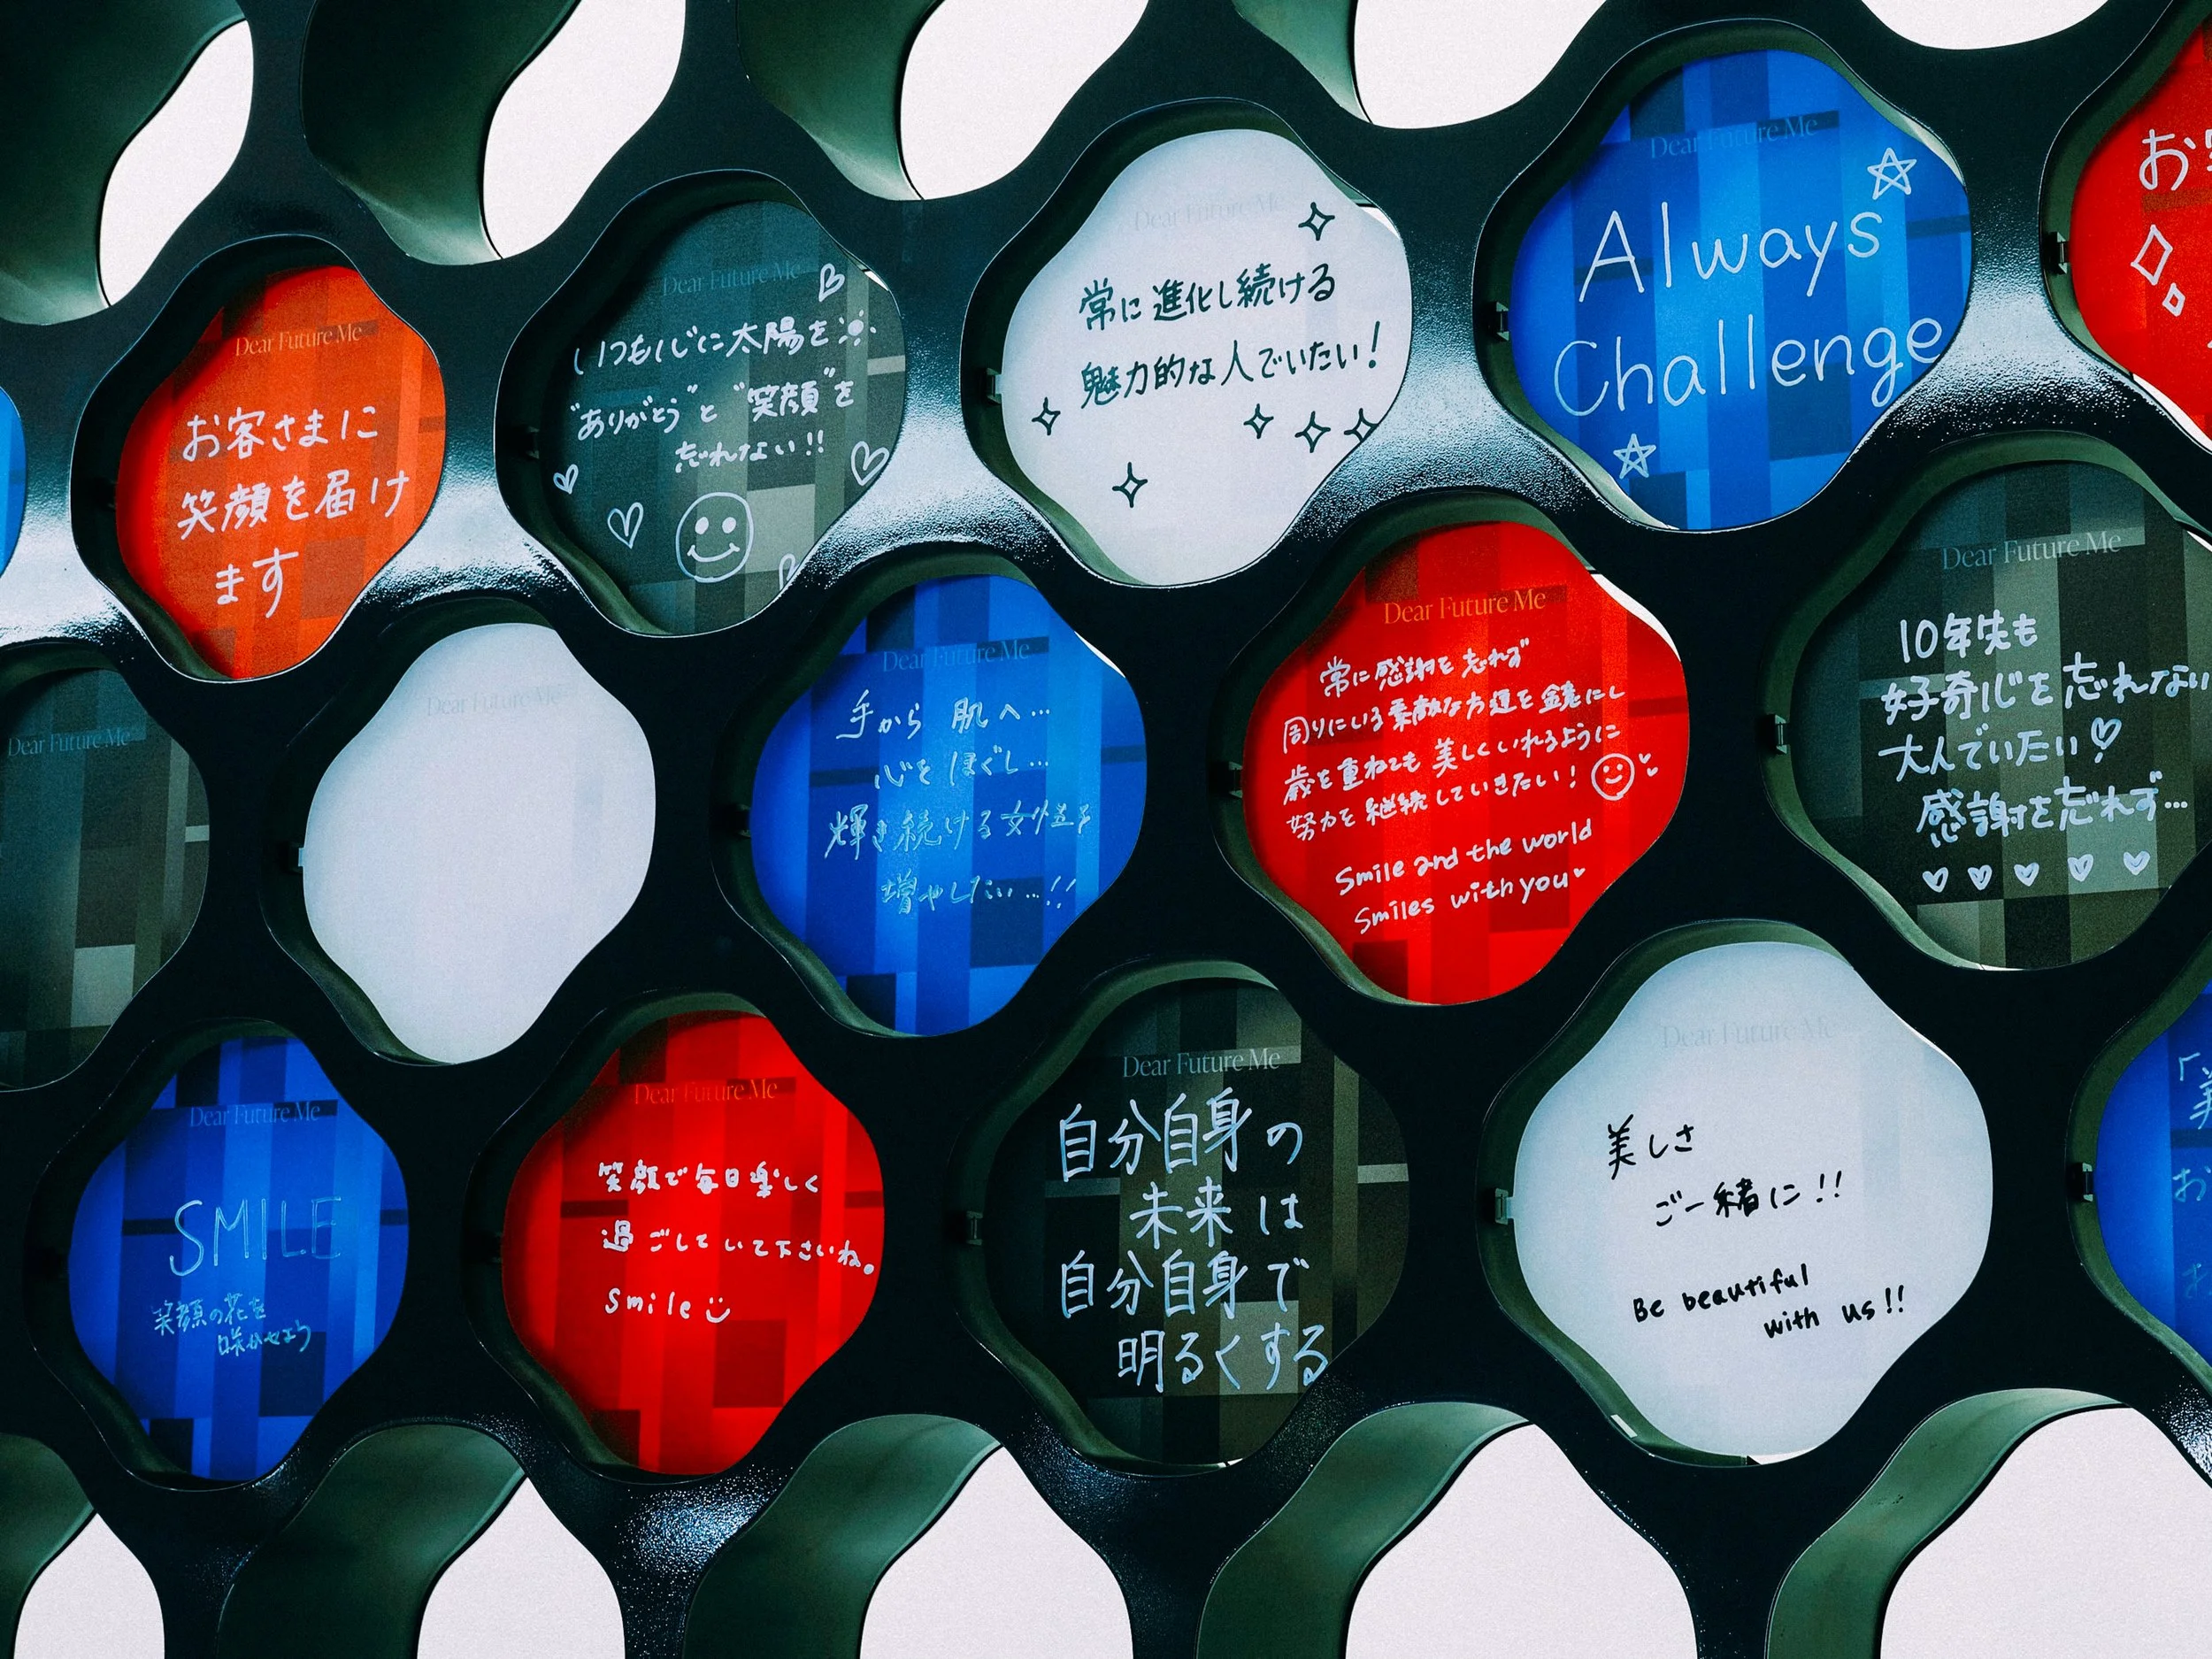 Dear Future Me
お客さまに
笑顔を届け
ます
Dear Future Me
いつも心に太陽を
"ありがとう"と"笑顔"を
忘れない!!
Dear Future Me
常に進化し続ける
魅力的な人でいたい!
Dear Future Me
Always
Challenge
Dear Future Me
Dear Future Me
Dear Future Me
手から 肌へ…
心を ほぐし…
輝き続ける女性を
増やしたい…!!
Dear Future Me
常に感謝を忘れず
周りにいる素敵な方達を鏡にし
歳を重ねても美しくいれるように
努力を継続していきたい!
Smile and the world
Smiles with you
Dear Future Me
10年先も
好奇心を忘れない
大人でいたい♡
感謝を忘れず…
♡♡♡♡♡
Dear Future Me
SMILE
笑顔の花を
咲かせよう
Dear Future Me
笑顔で毎日楽しく
過ごしていて下さいね。
smile
Dear Future Me
自分自身の
未来は
自分自身で
明るくする
Dear Future Me
美しさ
ご一緒に!!
Be beautiful
with us!!